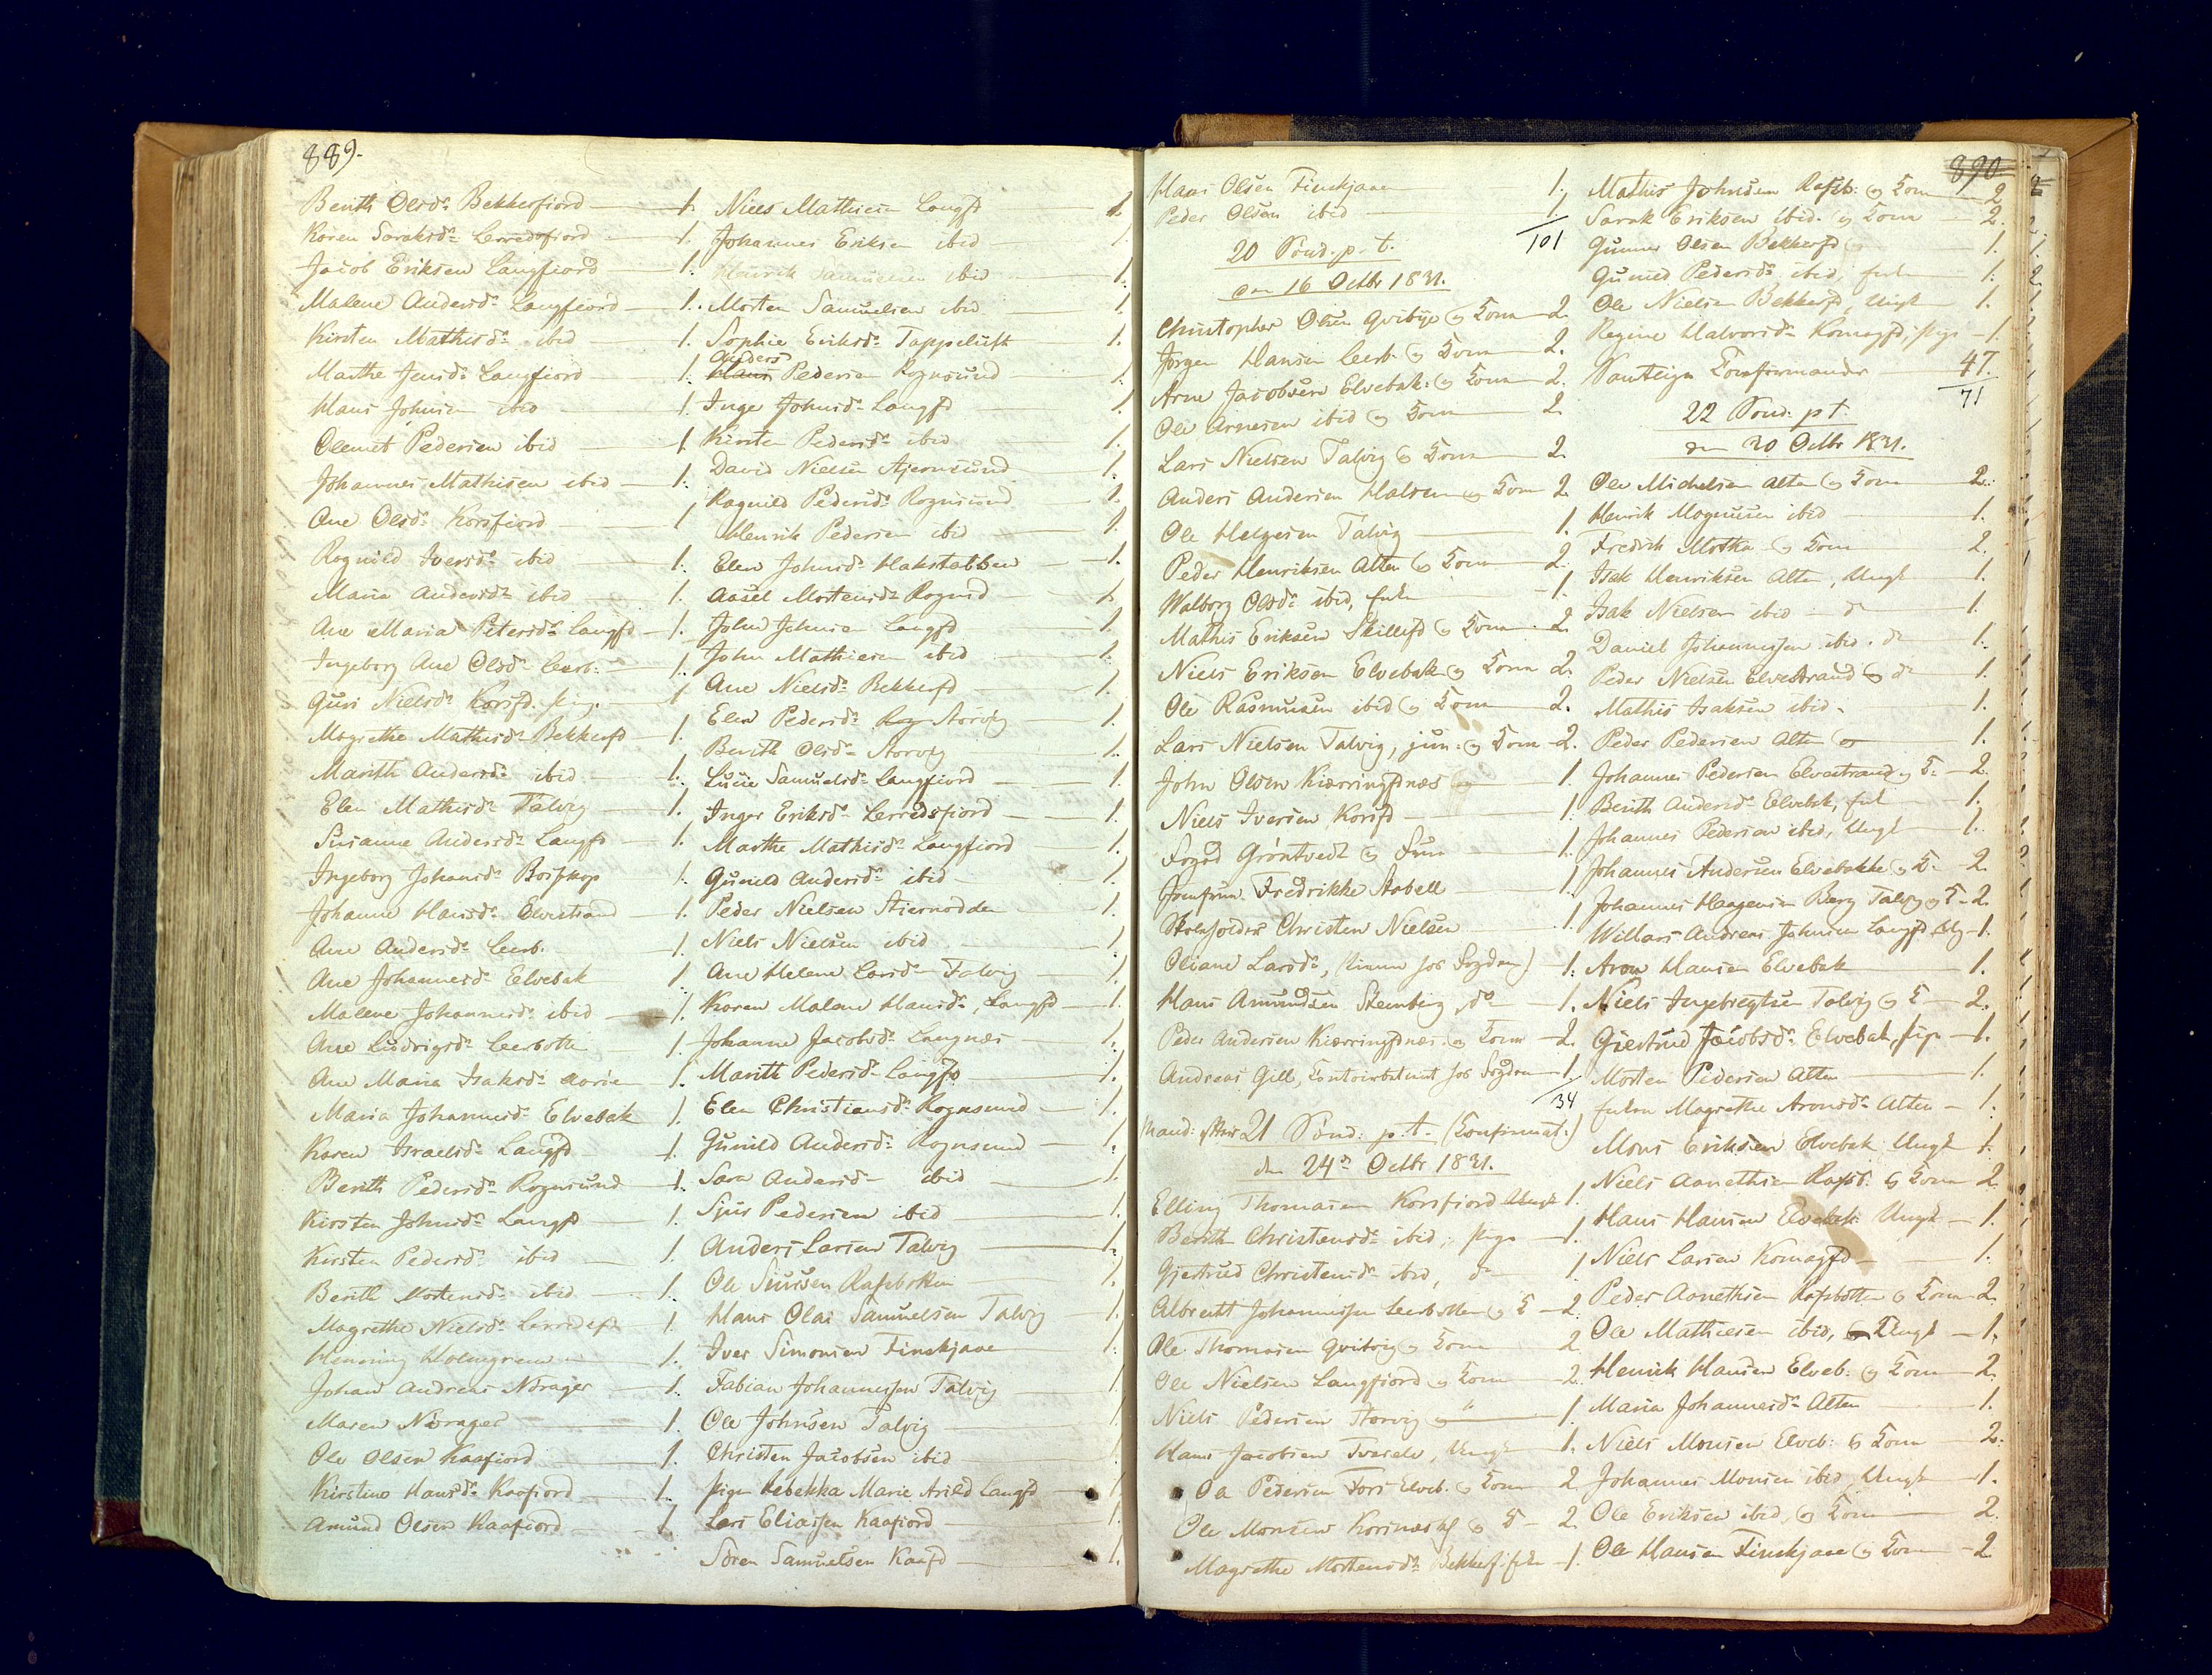 889.
Berith Olsd. Bekkerfiord 1.
Karen Saraksd. Lerredsfiord 1.
Jacob Eriksen Langfiord 1.
Malene Andersd. Langfiord 1.
Kirsten Mathisd. ibid 1.
Marthe Jensd. Langfiord 1.
Hans Johnsen ibid 1.
Clemet Pedersen ibid 1
Johannes Mathisen ibid 1.
Ane Olsd. Korsfiord 1
Ragnild Iversd. ibid 1.
Maria Andersd. ibid 1.
Ane Maria Petersd. Langfd 1.
Ingeborg Ane Olsd. Leerb. 1.
Guri Nielsd. Korsfd. pig. 1
Magrethe Mathisd. Bekkerfd 1.
Marith Andersd. ibid 1.
Elen Mathisd. Talvig 1.
Susanne Andersd. Langfd 1.
Ingeborg Johansd. Bosekop 1.
Johanne Hansd. Elvestrand 1.
Ane Andersd. Leerb. 1.
Ane Johannesd. Elvebak 1.
Malene Johannesd. ibid 1.
Ane Ludvigsd. Leerbotten 1.
Ane Maria Isaksd. 1.
Maria Johannesd. Elvebak 1.
Karen Israelsd. Langfd 1.
Berith Pedersd. Rognsund 1.
Kirsten Johnsd. Langfd 1.
Kirsten Pedersd. ibid 1.
Berith Mortensd. ibid 1.
Magrethe Nielsd. Lerredsfd 1.
Henning Holmgreen 1.
Johan Andreas Norager 1.
Maren Norager 1.
Ole Olsen Kaafiord 1.
Kirstine Hansd. Kaafiord 1.
Amund Olsen Kaafiord 1
Niels Mathisen Langfd 1
Johannes Eriksen ibid 1
Henrik Samuelsen ibid 1.
Morten Samuelsen ibid 1
Sophie Eriksd. Tappeluft 1.
Anders
Hans Pedersen Rognsund 1.
Inge Johnsd. Langfd 1
Kirsten Pedersd. ibid 1.
David Nielsen Stjernsund 1.
Ragnild Pedersd. Rognsund 1.
Henrik Pedersen ibid 1.
Elen Johnsd. Hakstabben 1.
Aasel Mortensd. Rognsd 1.
John Johnsen Langfd 1.
John Mathiesen ibid 1.
Ane Nielsd. Bekkerfd 1.
Elen Pedersd. Rog Storvig 1.
Berith Olsd. Storvig 1.
Lucie Samuelsd. Langfiord 1.
Inger Eriksd. Lerredsfiord 1.
Marthe Mathisd. Langfiord 1.
Gunild Andersd. ibid 1.
Peder Nielsen Stiernodden 1.
Niels Nielsen ibid 1.
Ane Helene Larsd. Talvig 1.
Karen Malene Hansd., Langfd 1.
Johanne Jacobsd. Langnæs 1.
Marith Pedersd. Langfd 1.
Elen Christiansd. Rognsund 1.
Gunild Andersd. Rognsund 1.
Sara Andersd. ibid 1.
Sjur Pedersen ibid 1.
Anders Larsen Talvig 1.
Ole Siursen Rafsbotten 1.
Hans Olai Samuelsen Talvig 1.
Iver Simonsen Finskjaae 1.
Fabian Johannessen Talvig 1
Ole Johnsen Talvig 1
Christen Jacobsen ibid 1
pigen Rebekka Marie Arild Langfd 1
Lars Eliassen Kaafiord 1.
Sören Samuelsen Kaafd 1.
890
Hans Olsen Finskjaae 1.
Peder Olsen ibid 1.
101
20 Sönd. p. t.
den 16 Octbr 1831.
Christopher Olsen Qvibye og Kone 2.
Jørgen Hansen Leerb. og Kone 2.
Arne Jacobsen Elvebak. og Kone 2.
Ole Arnesen ibid og Kone 2.
Lars Nielsen Talvig og Kone 2.
Anders Andersen Halsen og Kone 2.
Ole Helgesen Talvig 1.
Peder Henriksen Alten og Kone 2.
Walborg Olsd. ibid, enke 1.
Mathis Eriksen Skillefd og Kone 2.
Niels Eriksen Elvebak og Kone 2.
Ole Rasmusen ibid og Kone 2.
Lars Nielsen Talvig, jun. og Kone 2.
John Olsen Kiærringfnæs 1.
Niels Iversen Korsfd 1.
Foged Gröntvedt og Frue 1.
Jomfrue Fredrikke Stabell 1.
Skoleholder Christen Nielsen 1.
Oliane Larsd., (tienner hos Fogden) 1.
Hans Amundsen Steenberg, do 1.
Peder Andersen Kiærringfnæs og Kone 2.
Andreas Gill, Contoirbetient hos Fogden 1.
34
Mand. efter 21 Sönd. p. t. (Confirmat.)
den 24de Octbr 1831.
Elling Thomasen Korsfiord Ungk 1.
Berith Christensd. ibid, pige 1.
Gjertrud Christensd. ibid, do 1
Albrecht Johannessen Leerbotten og K 2.
Ole Thomasen Qvitvig og Kone 2
Ole Nielsen Langfiord og Kone 2.
Niels Pedersen Storvig 1.
Hans Jacobsen Tverelv, Ungk 1.
Ole Pedersen Fors Elveb. og Kone 2
Ole Monsen og K 2.
Magrethe Mortensd. Bekkerf. enke 1.
Mathis Johnsen Rafsb. og Kone 2
Sarak Eriksen ibid. og Kone 2.
Gunner Olsen Bekkerfd 1.
Gunild Pedersd. ibid, enke 1.
Ole Nielsen Bekkerfd, Ungk 1.
Regine Halvorsd. Komagfd, pige 1.
Samtlige Confirmander 47.
71
22 Sönd. p t.
den 30 Octbr 1831.
Ole Michelsen Alten og Kone 2.
Henrik Magnusen ibid 1.
Fredrik Motka og Kone 2.
Isak Henriksen Alten, Ungk 1.
Isak Nielsen ibid do 1.
Daniel Johannessen ibid. do 1.
Peder Nielsen Elvestrand do 1.
Mathis Isaksen ibid. 1.
Peder Pedersen Alten 1.
Johannes Pedersen Elvestrand og K. 2.
Berith Andersd. Elvebak, enk 1.
Johannes Pedersen ibid, Ungk 1.
Johannes Andersen Elvebakke og K. 2.
Johannes Haagensen Berg Talvig og K 2.
Willars Andreas Johnsen Langfd, Ug 1.
Aron Hansen Elvebak 1.
Niels Ingebregtsen Talvig og K 2.
Giertrud Jacobsd. Elvebak, pige 1.
Morten Pedersen Alten 1.
Enken Magrethe Aronsd. Alten 1.
Mons Eriksen Elvebak Ungk 1.
Niels Aanethsen Rafsb. og Kone 2.
Hans Hansen Elvebak Ungk 1.
Niels Larsen Komagfd 1.
Peder Aanethsen Rafsbotten og Kone 2.
Ole Mathiesen ibid, Ungk 1.
Henrik Hansen Elveb. og Kone 2.
Maria Johannesd. Alten 1.
Niels Monsen Elveb. og Kone 2.
Johannes Monsen ibid, Ungk 1.
Ole Eriksen ibid, og Kone 2.
Ole Hansen Finskjaae og Kone 2